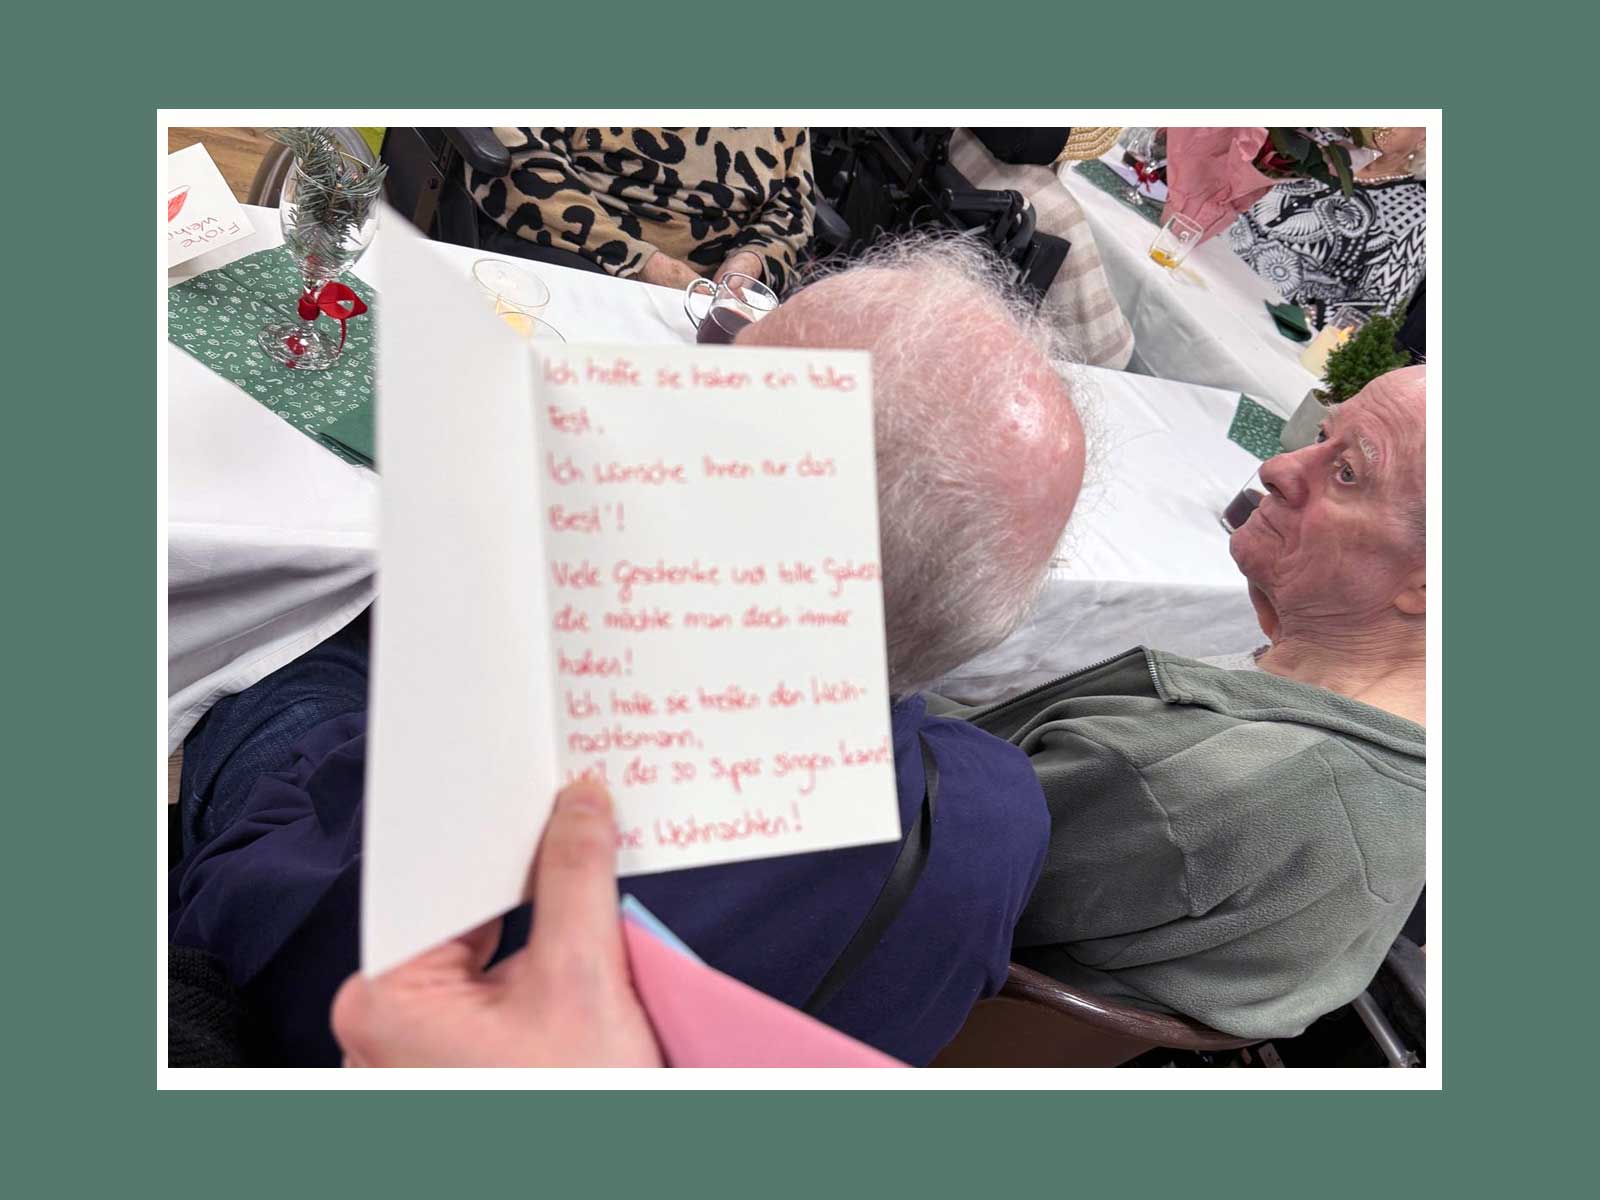 Frohe
Weihn
Ich hoffe sie haben ein tolles
Fest.
Ich wünsche Ihnen nur das
Best'!
Viele Geschenke und tolle Gaben,
die möchte man doch immer
haben!
Ich hoffe sie treffen den Weih-
nachtsmann,
weil der so super singen kann!
he Weihnachten!